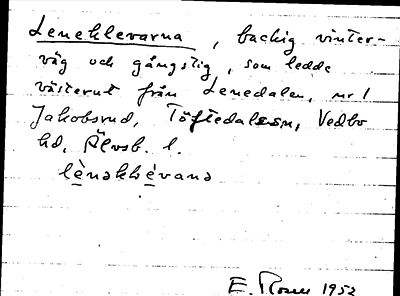 Leneklevarna, backig vinter-
väg och gångstig, som ledde
västerut från Lenedalen, nr 1
Jakobsrud, Töftedals sn, Vedbo
hd, Älvsb. l.
lènəkləvana
E. Rosen 1952